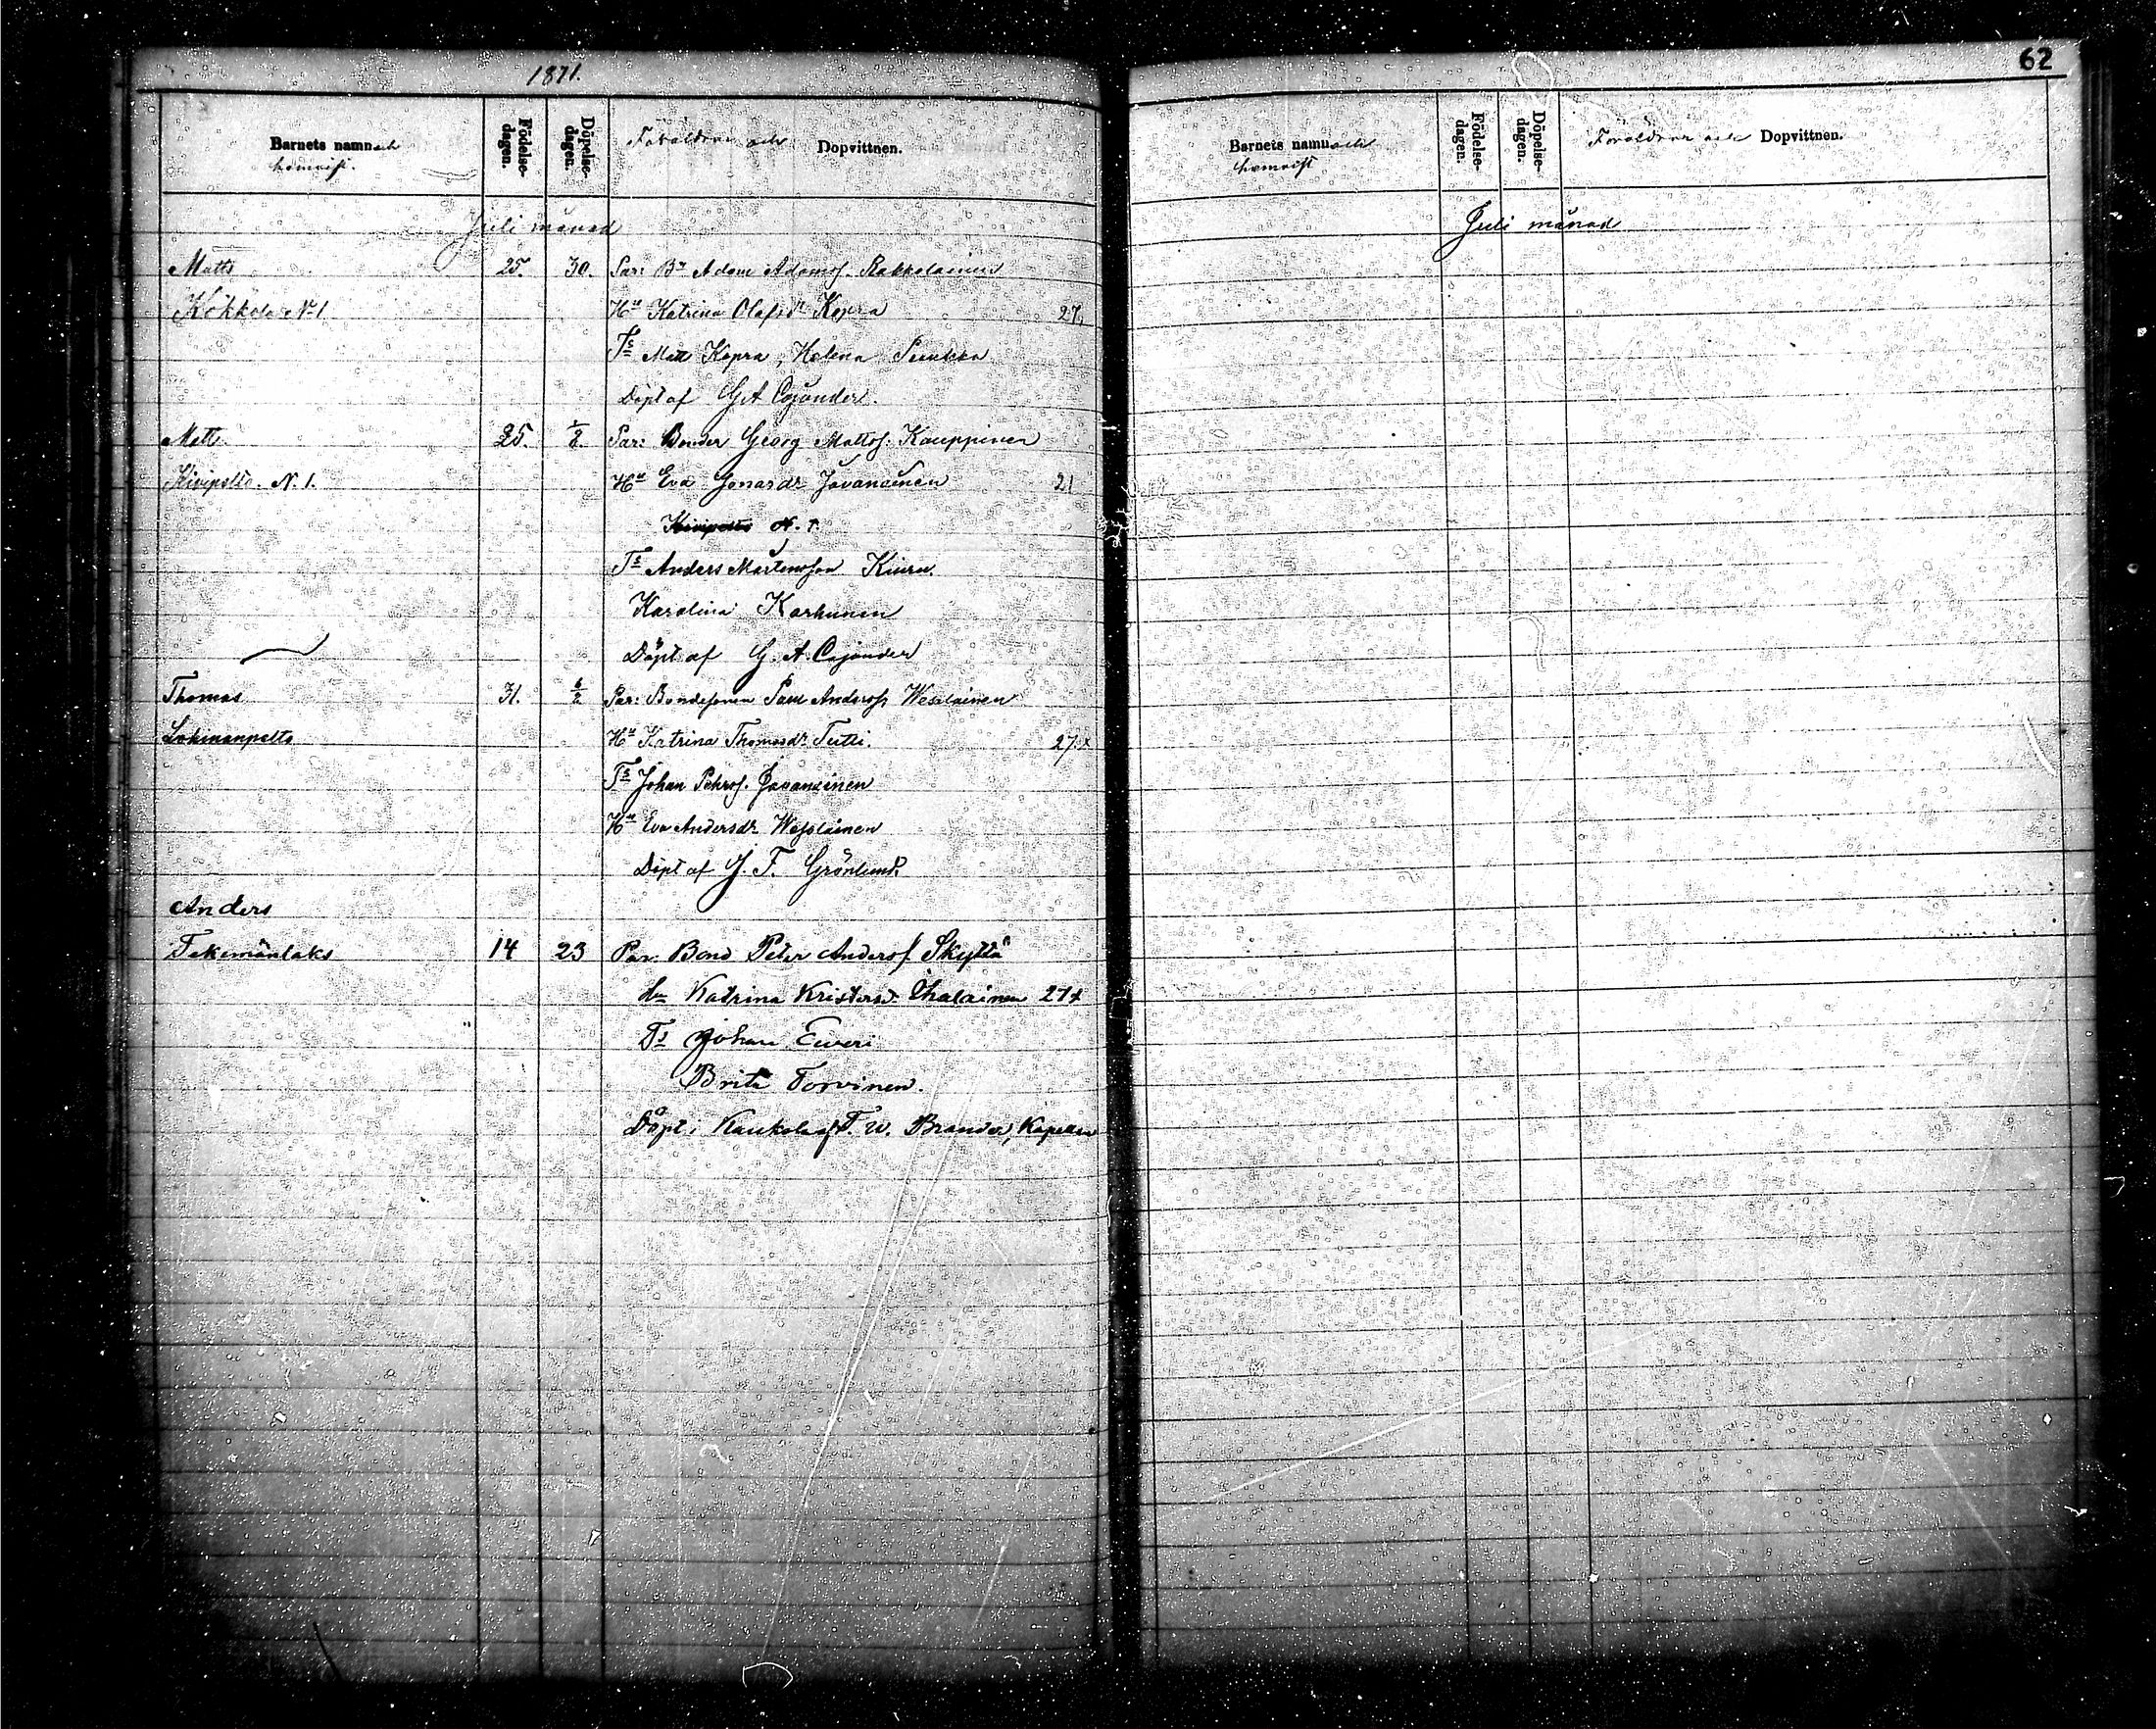 1871.
62
Barnets namn och hemvist.
Födelse-dagen.
Döpelse-dagen.
Föräldrar och Dopvittnen.
Juli månad
Matts 25. 30. Par: Bn Adam Adamss. Rakkolainen
Kokkola N 1 Hu Katrina Olafsdr Kopra 27,
Ts Matt Kopra, Helena
Döpt af G A Cajander.
Matt. 25. 1/8. Par: Bonden Georg Mattss. Kauppinen
Kivipelto. N. 1. Hu Eva Jonasdr Javanainen 21
Kivipelto N. 1.
Ts Anders Mårtensson Kiuru.
Karolina Karhunen
Döpt af G. A. Cajander
Thomas 31. 6/8 Par: Bondesonen Paul Anderss. Wesalainen
Lohmanpelto Hu Katrina Thomasdr Tutti. 27x
Ts Johan Pehrss. Javanainen
Hu Eva Andersdr Wesalainen
Döpt af J. F. Grönlund.
Anders
Tekemänlaks 14 23 Par: Bond Peter Anderss Skyttä
Katrina Kristersd. Ihalainen 27x
Ts Johan
Brita Torvinen.
Döpt i Kaukola af F. W. Brander, Kapellan
Barnets namn och hemvist
Födelse-dagen.
Döpelse-dagen.
Föräldrar och Dopvittnen.
Juli månad